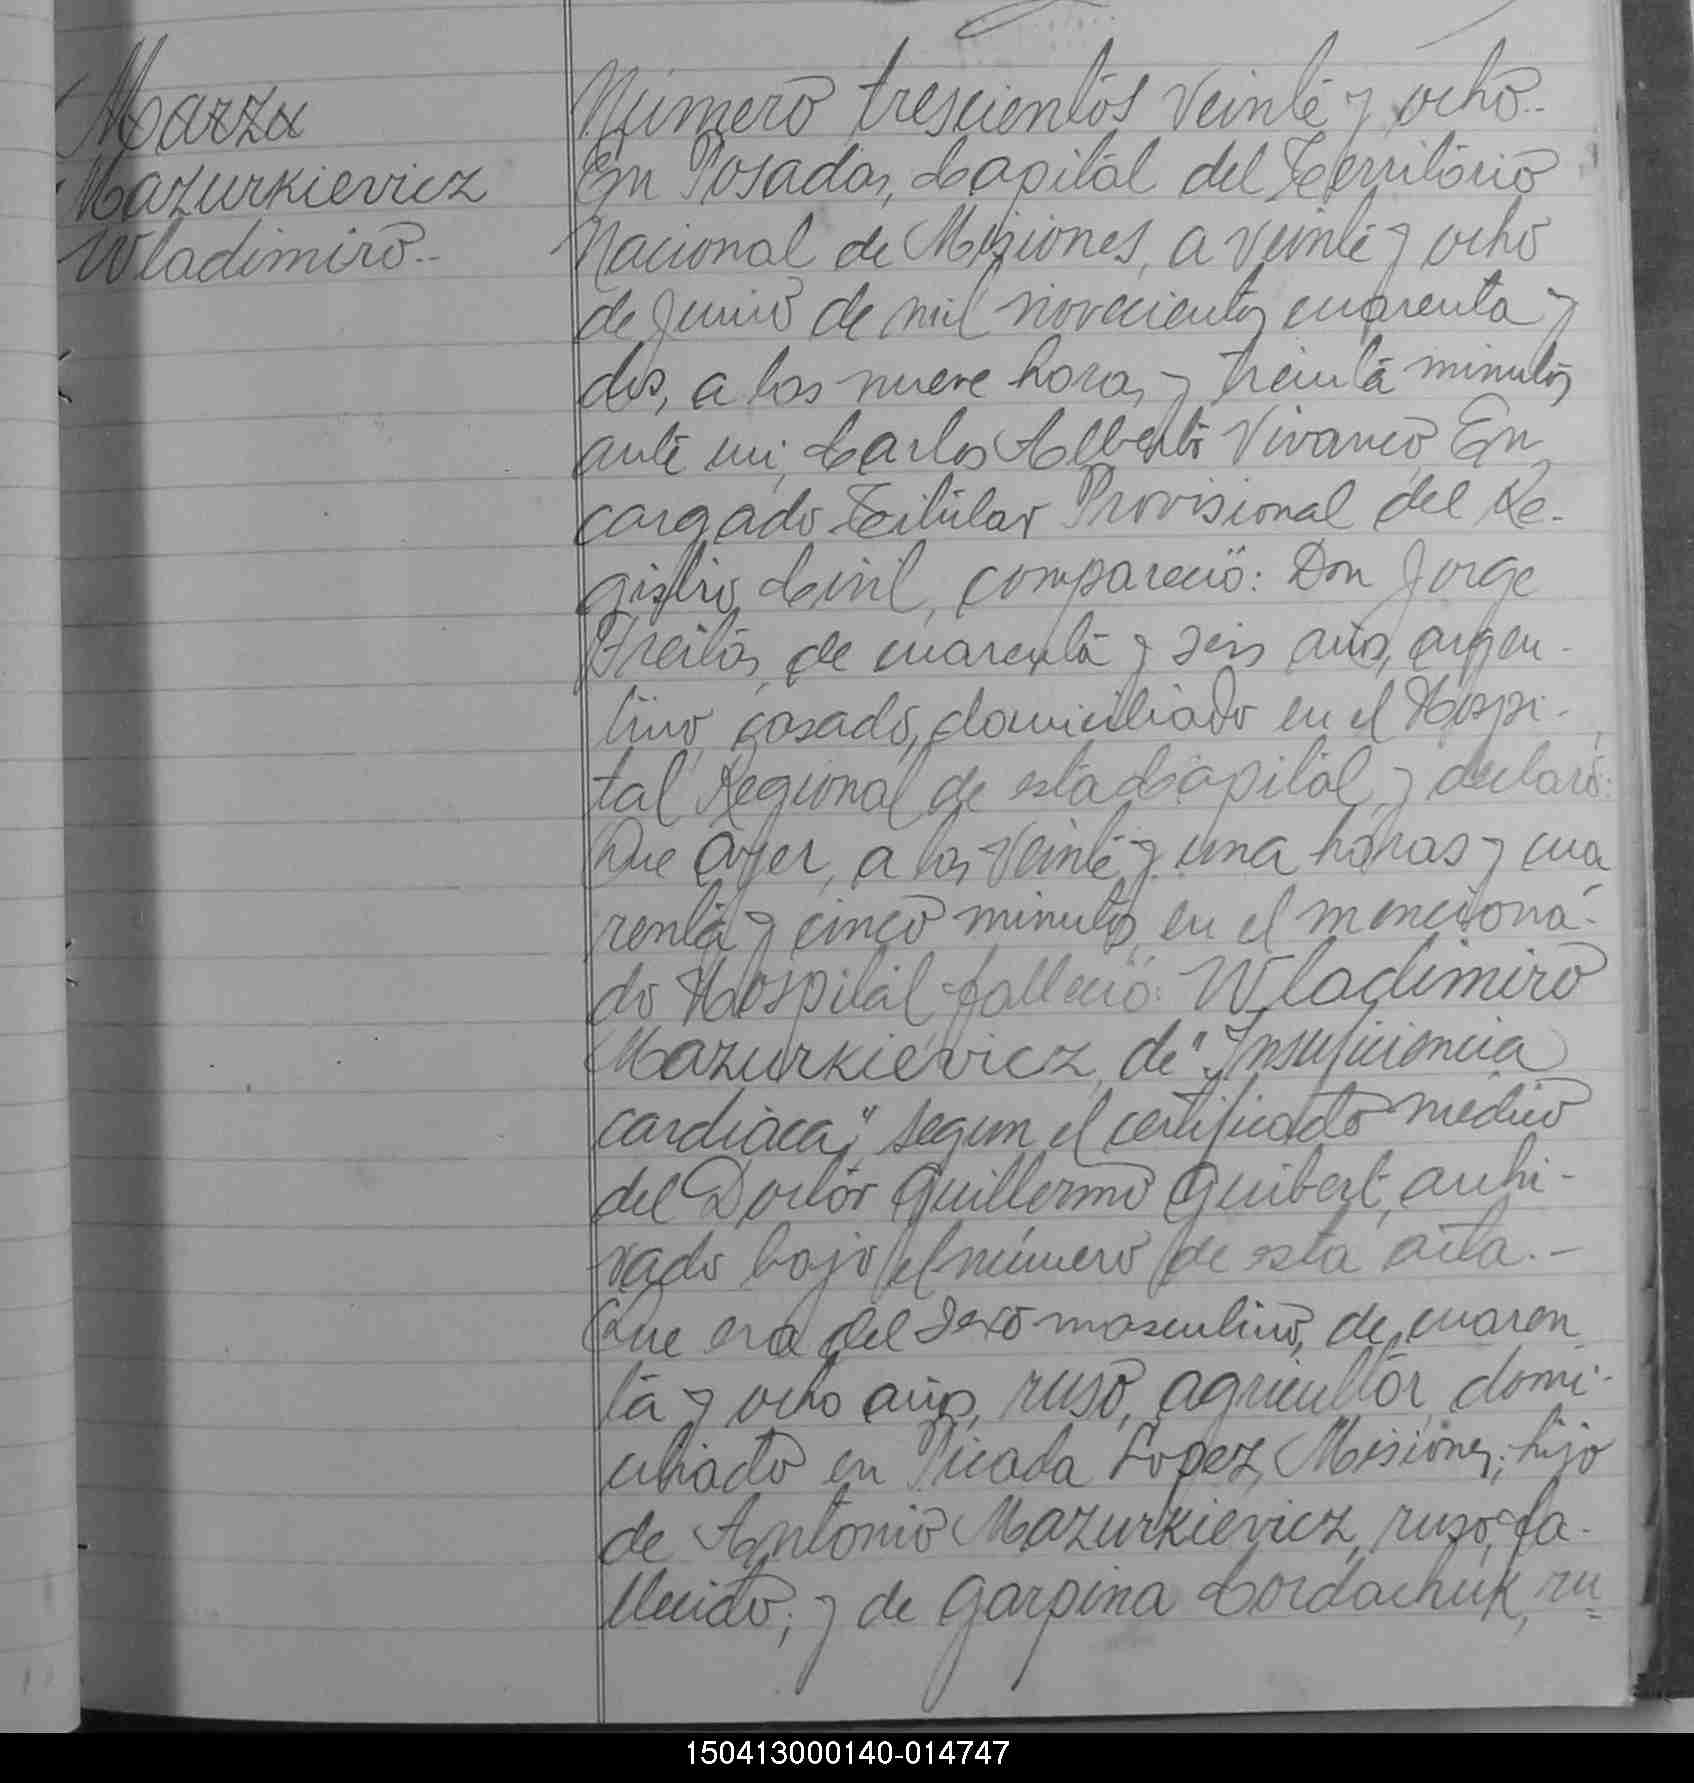 Mazzu
Mazurkievicz
Wladimiro.-
Número trescientos veinte y ocho.-
En Posadas, Capital del Territorio
Nacional de Misiones, a veinte y ocho
de Junio de mil novecientos cuarenta y
dos, a las nueve horas y treinta minutos
ante mi, Carlos Alberto Vivanco, En
cargado Titular Provisional del Re-
gistro Civil, compareció: Don Jorge
Freitas, de cuarenta y seis años, argen-
tino, casado, domiciliado en el Hospi-
tal Regional de esta Capital, y declaró:
Que ayer, a las veinte y una horas y cua
renta y cinco minutos, en el menciona-
do Hospital falleció: Wladimiro
Mazurkievicz, de "Insuficiencia
cardiaca," segun el certificado médico
del Doctor Guillermo Guibert, archi-
vado bajo el número de esta acta.-
Que era del sexo masculino, de cuaren
ta y ocho años, ruso, agricultor, domi-
ciliado en Picada Lopez, Misiones; hijo
de Antonio Mazurkievicz, ruso, fa-
llecido; y de Garpina Cordachuk, ru=
150413000140-014747